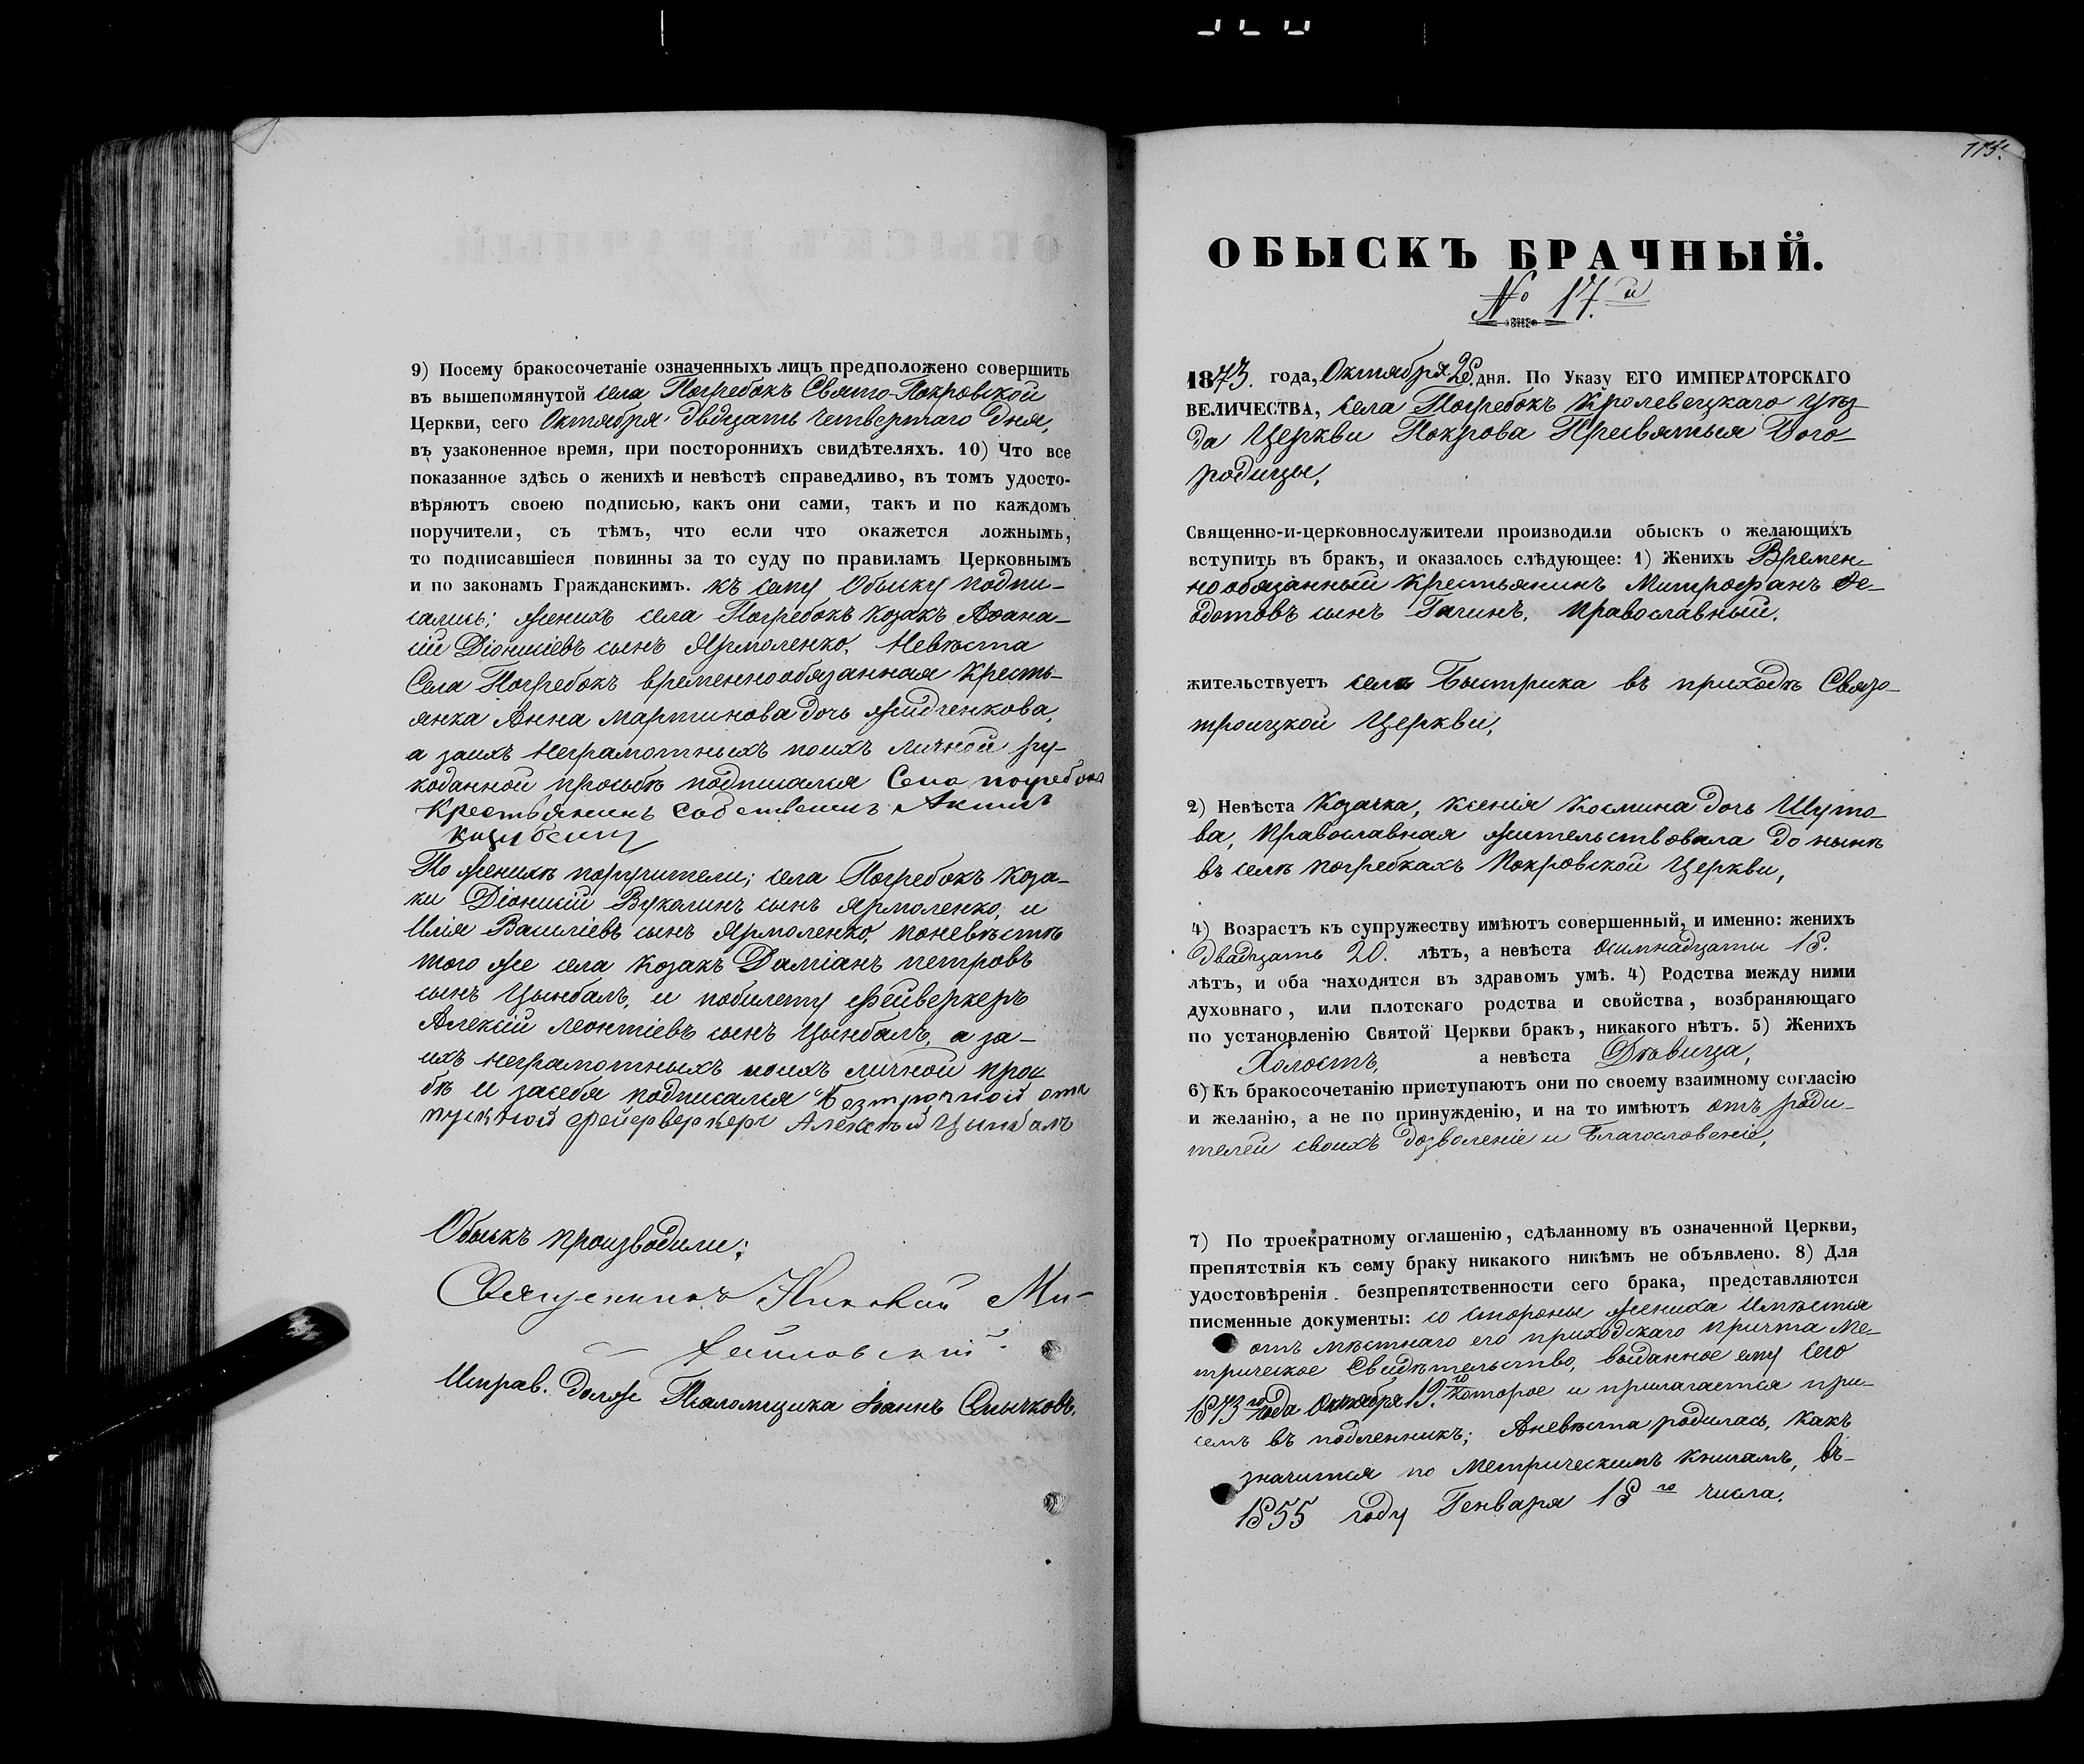 9) Посему бракосочетаніе означенныхъ лицъ предположено совершить
въ вышепомянутой села Погребокъ Свято-Покровской
Церкви, сего Октября двадцать четвертаго дня,
въ узаконенное время, при постороннихъ свидѣтеляхъ. 10) Что все
показанное здѣсь о женихѣ и невѣстѣ справедливо, въ томъ удосто-
вѣряютъ своею подписью, какъ они сами, такъ и по каждомъ
поручители, съ тѣмъ, что если что окажется ложнымъ,
то подписавшіеся повинны за то суду по правиламъ Церковнымъ
и по законамъ Гражданскимъ. къ сему Обыску подпи-
сались; женихъ села Погребокъ козакъ Аѳана-
сій Діонисіевъ сынъ Ярмоленко, Невѣста
Села Погребокъ временнообязанная Кресть-
янка Анна Мартинова дочь
а заихъ неграмотныхъ поихъ личной ру-
коданной прозьбѣ подписался Села погребокъ
Крестьянинъ собственникъ
По женихѣ поручители; села Погребокъ коза-
ки Діонисій Вуколинъ сынъ Ярмоленко, и
Илія Василіевъ сынъ Ярмоленко, поневѣстѣ
того же села козакъ Даміанъ петровъ
сынъ Цынбалъ, и побилету фейверкеръ
Алексій Леонтіевъ сынъ Цынбалъ, а за-
ихъ неграмотныхъ поихъ личной прозь
бѣ и засебя подписался Безсрочной отъ
пускной фейерверкеръ Алексѣй Цынбалъ
Обыскъ производили:
Священникъ Николай Ми-
хайловскій.
Исправ. долж Псаломщика Іоаннъ Смычковъ.
115.
ОБЫСКЪ БРАЧНЫЙ.
№ 17.й
1873. года, Октября 28. дня. По Указу ЕГО ИМПЕРАТОРСКАГО
ВЕЛИЧЕСТВА, села Погребокъ Кролевецкаго уѣз
да Церкви Покрова Пресвятыя Бого-
родицы,
Священно-и-церковнослужители производили обыскъ о желающихъ
вступить въ бракъ, и оказалось слѣдующее: 1) Женихъ Времен-
нообязанный крестьянинъ Митрофанъ Ѳе-
одотовъ сынъ Гагинъ, православный.
жительствуетъ села Быстрика въ приходѣ Свято-
троицкой Церкви,
2) Невѣста Козачка, ксенія космина дочь Шуто
ва, православная жительствовала до нынѣ
въ селѣ погребкахъ Покровской Церкви,
4) Возрастъ къ супружеству имѣютъ совершенный, и именно: женихъ
двадцать 20. лѣтъ, а невѣста осимнадцать 18.
лѣтъ, и оба находятся въ здравомъ умѣ. 4) Родства между ними
духовнаго, или плотскаго родства и свойства, возбраняющаго
по установленію Святой Церкви бракъ, никакого нѣтъ. 5) Женихъ
Холостъ, а невѣста Дѣвица,
6) Къ бракосочетанію приступаютъ они по своему взаимному согласію
и желанію, а не по принужденію, и на то имѣютъ отъ роди-
телей своихъ дозволеніе и благословеніе,
7) По троекратному оглашенію, сдѣланному въ означенной Церкви,
препятствія къ сему браку никакого никѣмъ не объявлено. 8) Для
удостовѣренія безпрепятственности сего брака, представляются
писменные документы: со стороны жениха Имѣется
отъ мѣстнаго его приходскаго причта Ме-
трическое Свидѣтельство, выданное ему сего
1873го года Октября 19.го которое и прилагается при-
семъ въ подленникъ; Аневѣста родилась, какъ
значится по Метрическимъ книгамъ, въ-
1855 году Генваря 18го числа.